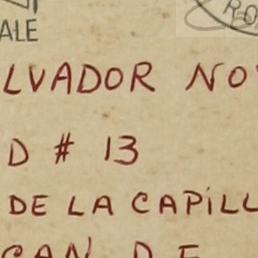 ALE
RO
LVADOR NO
D # 13
DE LA CAPILL
CAN D.F.